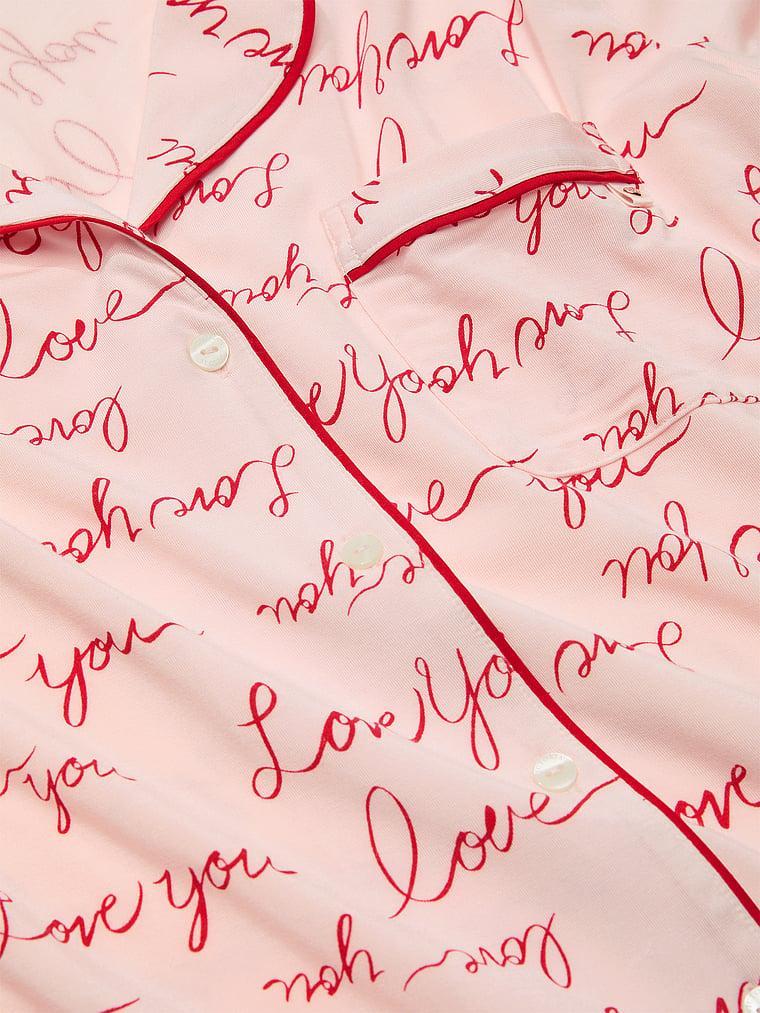 Love you
you
you
Love
you
you
love
you
Love you
you
love
Love you
you
you
you
Love You
you
love
love
Love you
Love you